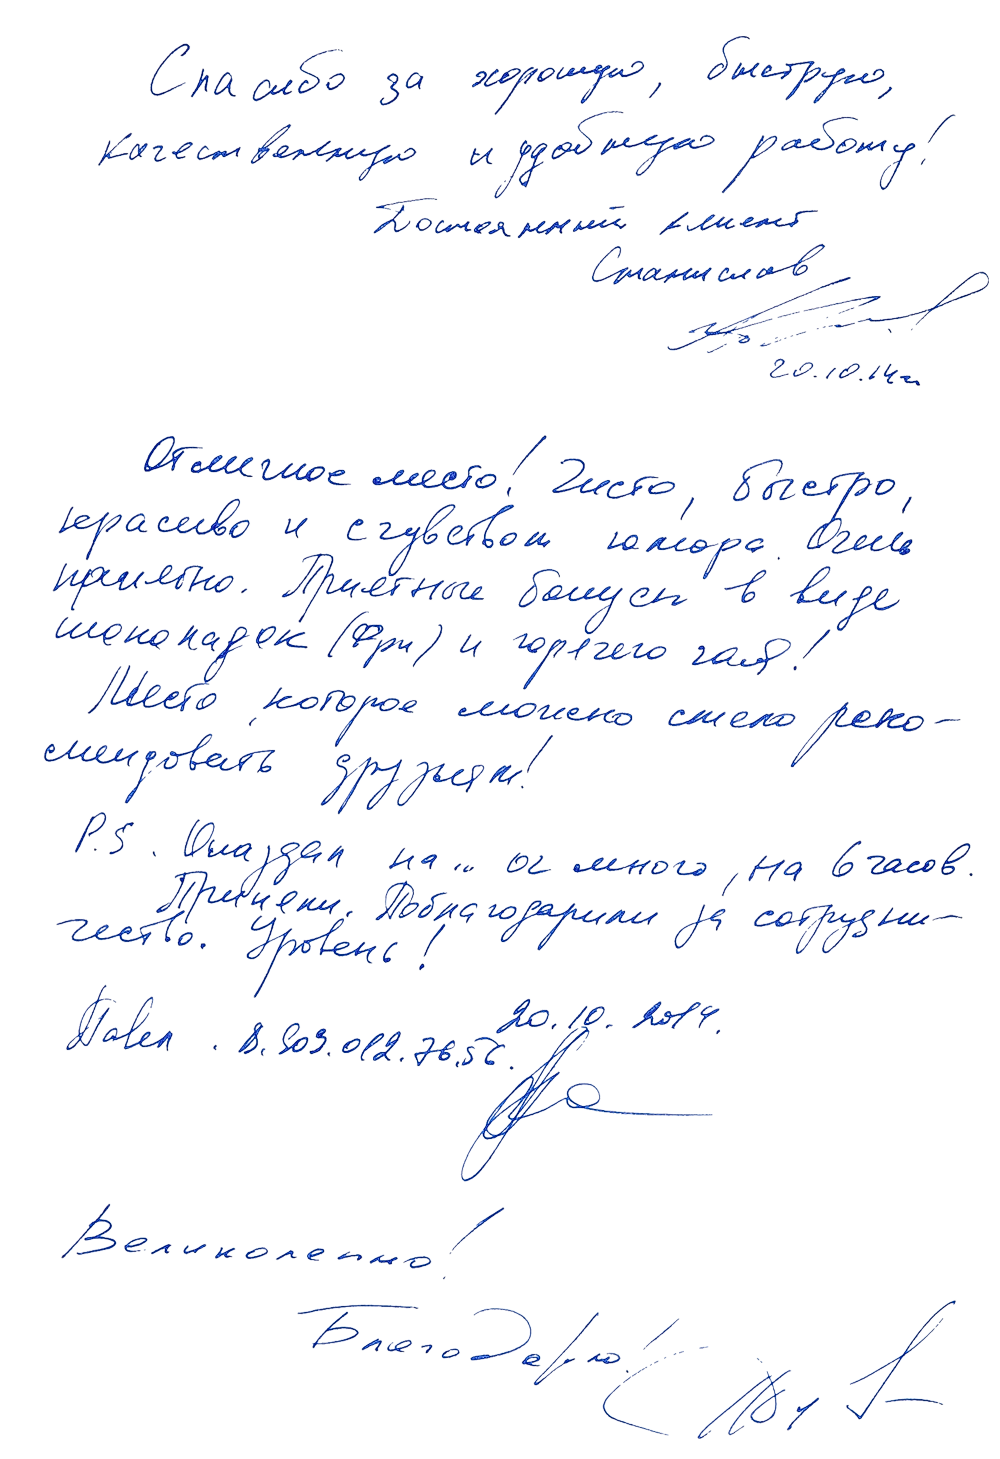 Спасибо за хорошую, быструю,
качественную и удобную работу!
Постоянный клиент
Станислав
20.10.14г
Отличное место! Чисто, быстро,
красиво и с чувством юмора. Очень
приятно. Приятные бонусы в виде
шоколадок (Фри) и горячего чая!
Место, которое можно смело реко-
мендовать друзьям!
P.S. Опоздал на... ог много, на 6 часов.
Приняли. Поблагодарили за сотрудни-
чество. Уровень!
20.10.2014.
Павел. 8.903.012.76.56.
Великолепно!
Благодарю!